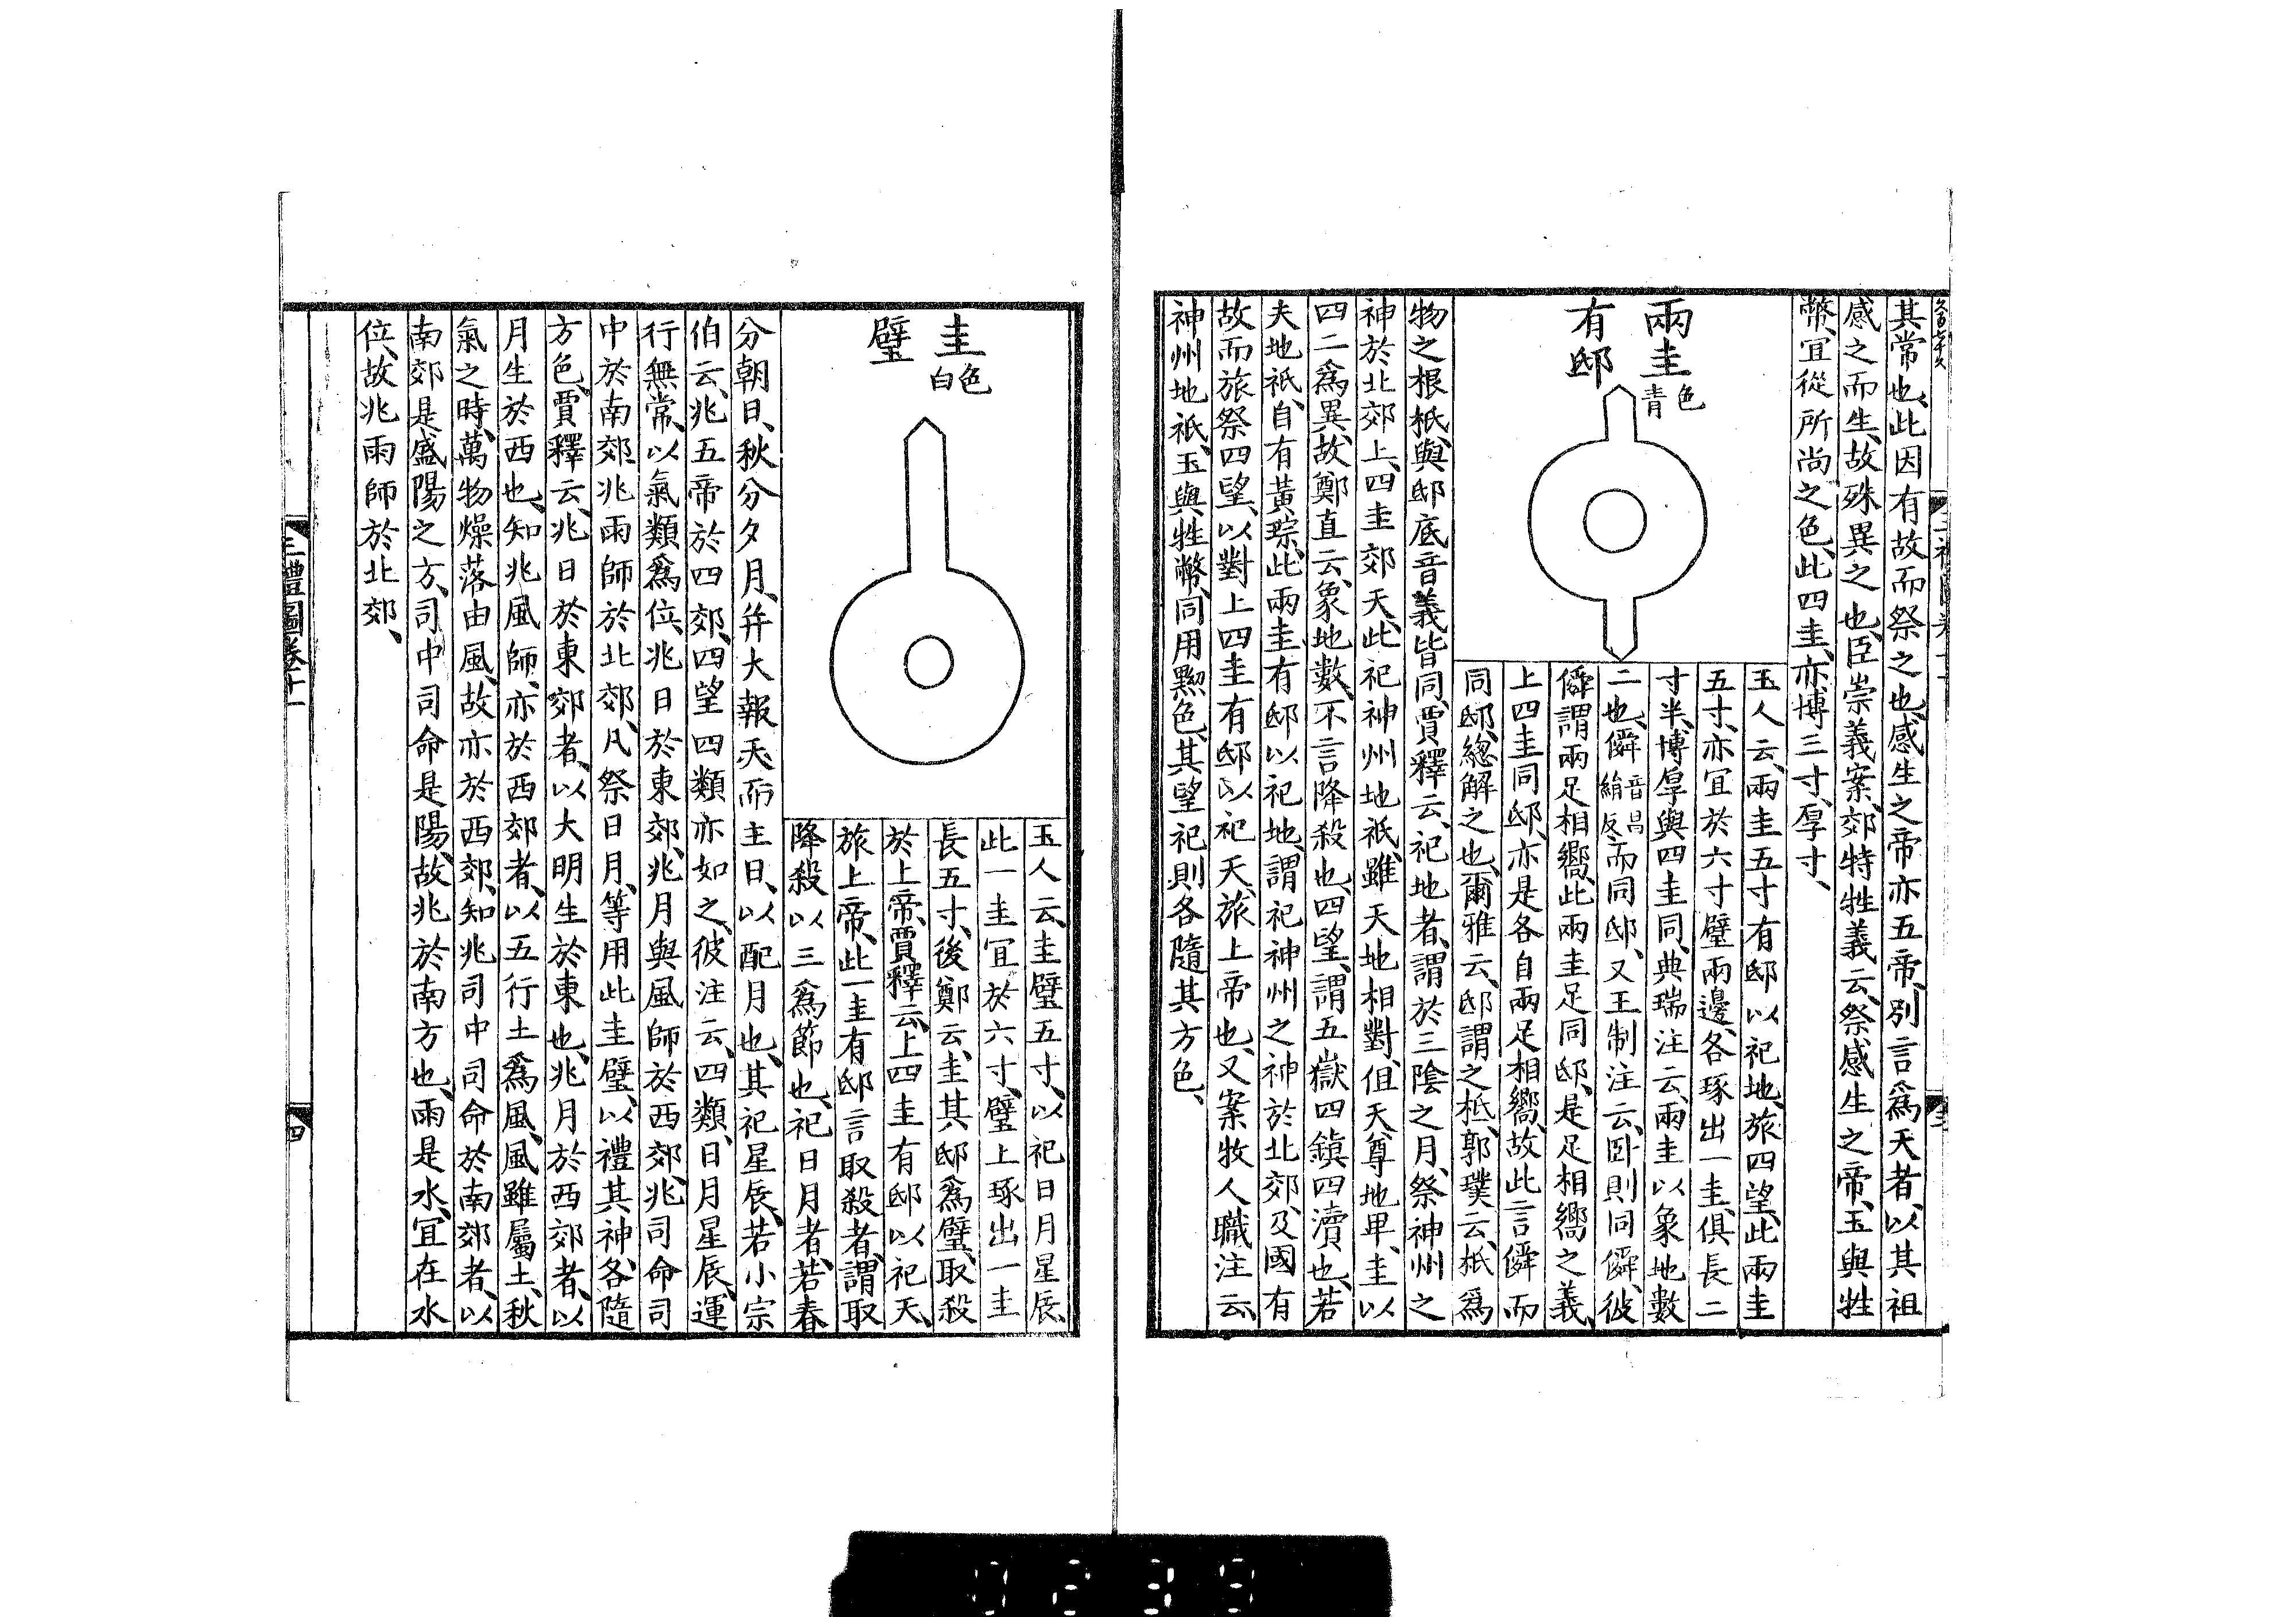 其常也、此因有故而祭之也、感生之帝亦五帝、別言爲天者、以其祖
感之而生、故殊異之也、臣崇義案、郊特牲義云、祭感生之帝、玉與牲
幣、宜從所尚之色、此四圭、亦博三寸、厚寸、
兩圭
青色
有邸
玉人云、兩圭五寸有邸、以祀地、旅四望、此兩圭
五寸、亦宜於六寸璧兩邊、各琢出一圭、俱長二
寸半、博厚與四圭同、典瑞注云、兩圭以象地數
二也、僢音昌絹反、而同邸、又王制注云、臥則同僢、彼
僢謂兩足相嚮、此兩圭足同邸、是足相嚮之義、
上四圭同邸、亦是各自兩足相嚮、故此言僢而
同邸、總解之也、爾雅云、邸謂之柢、郭璞云、柢爲
物之根柢、與邸底音義皆同、賈釋云、祀地者、謂於三陰之月、祭神州之
神於北郊、上、四圭郊天、此祀神州地祇、雖天地相對、但天尊地卑、圭以
四二爲異、故鄭直云、象地數、不言降殺也、四望、謂五嶽四鎭四瀆也、若
夫地祇、自有黃琮、此兩圭有邸以祀地、謂祀神州之神於北郊、及國有
故而旅祭四望、以對上四圭有邸以祀天、旅上帝也、又案牧人職注云、
神州地祇、玉與牲幣、同用黝色、其望祀則各隨其方色、
圭
白色
璧
玉人云、圭璧五寸、以祀日月星辰、
此一圭宜於六寸、璧上琢出一圭
長五寸、後鄭云、圭其邸爲璧、取殺
於上帝、賈釋云、上四圭有邸以祀天、
旅上帝、此一圭有邸言取殺者、謂取
降殺以三爲節也、祀日月者、若春
分朝日、秋分夕月、并大報天而主日、以配月也、其祀星辰、若小宗
伯云、兆五帝於四郊、四望四類亦如之、彼注云、四類、日月星辰、運
行無常、以氣類爲位、兆日於東郊、兆月與風師於西郊、兆司命司
中於南郊、兆雨師於北郊、凡祭日月、等用此圭璧、以禮其神、各隨
方色、賈釋云、兆日於東郊者、以大明生於東也、兆月於西郊者、以
月生於西也、知兆風師、亦於西郊者、以五行土爲風、風雖屬土、秋
氣之時、萬物燥落由風、故亦於西郊、知兆司中司命於南郊者、以
南郊是盛陽之方、司中司命是陽、故兆於南方也、雨是水、宜在水
位、故兆雨師於北郊、
三禮圖卷十一
四
0239